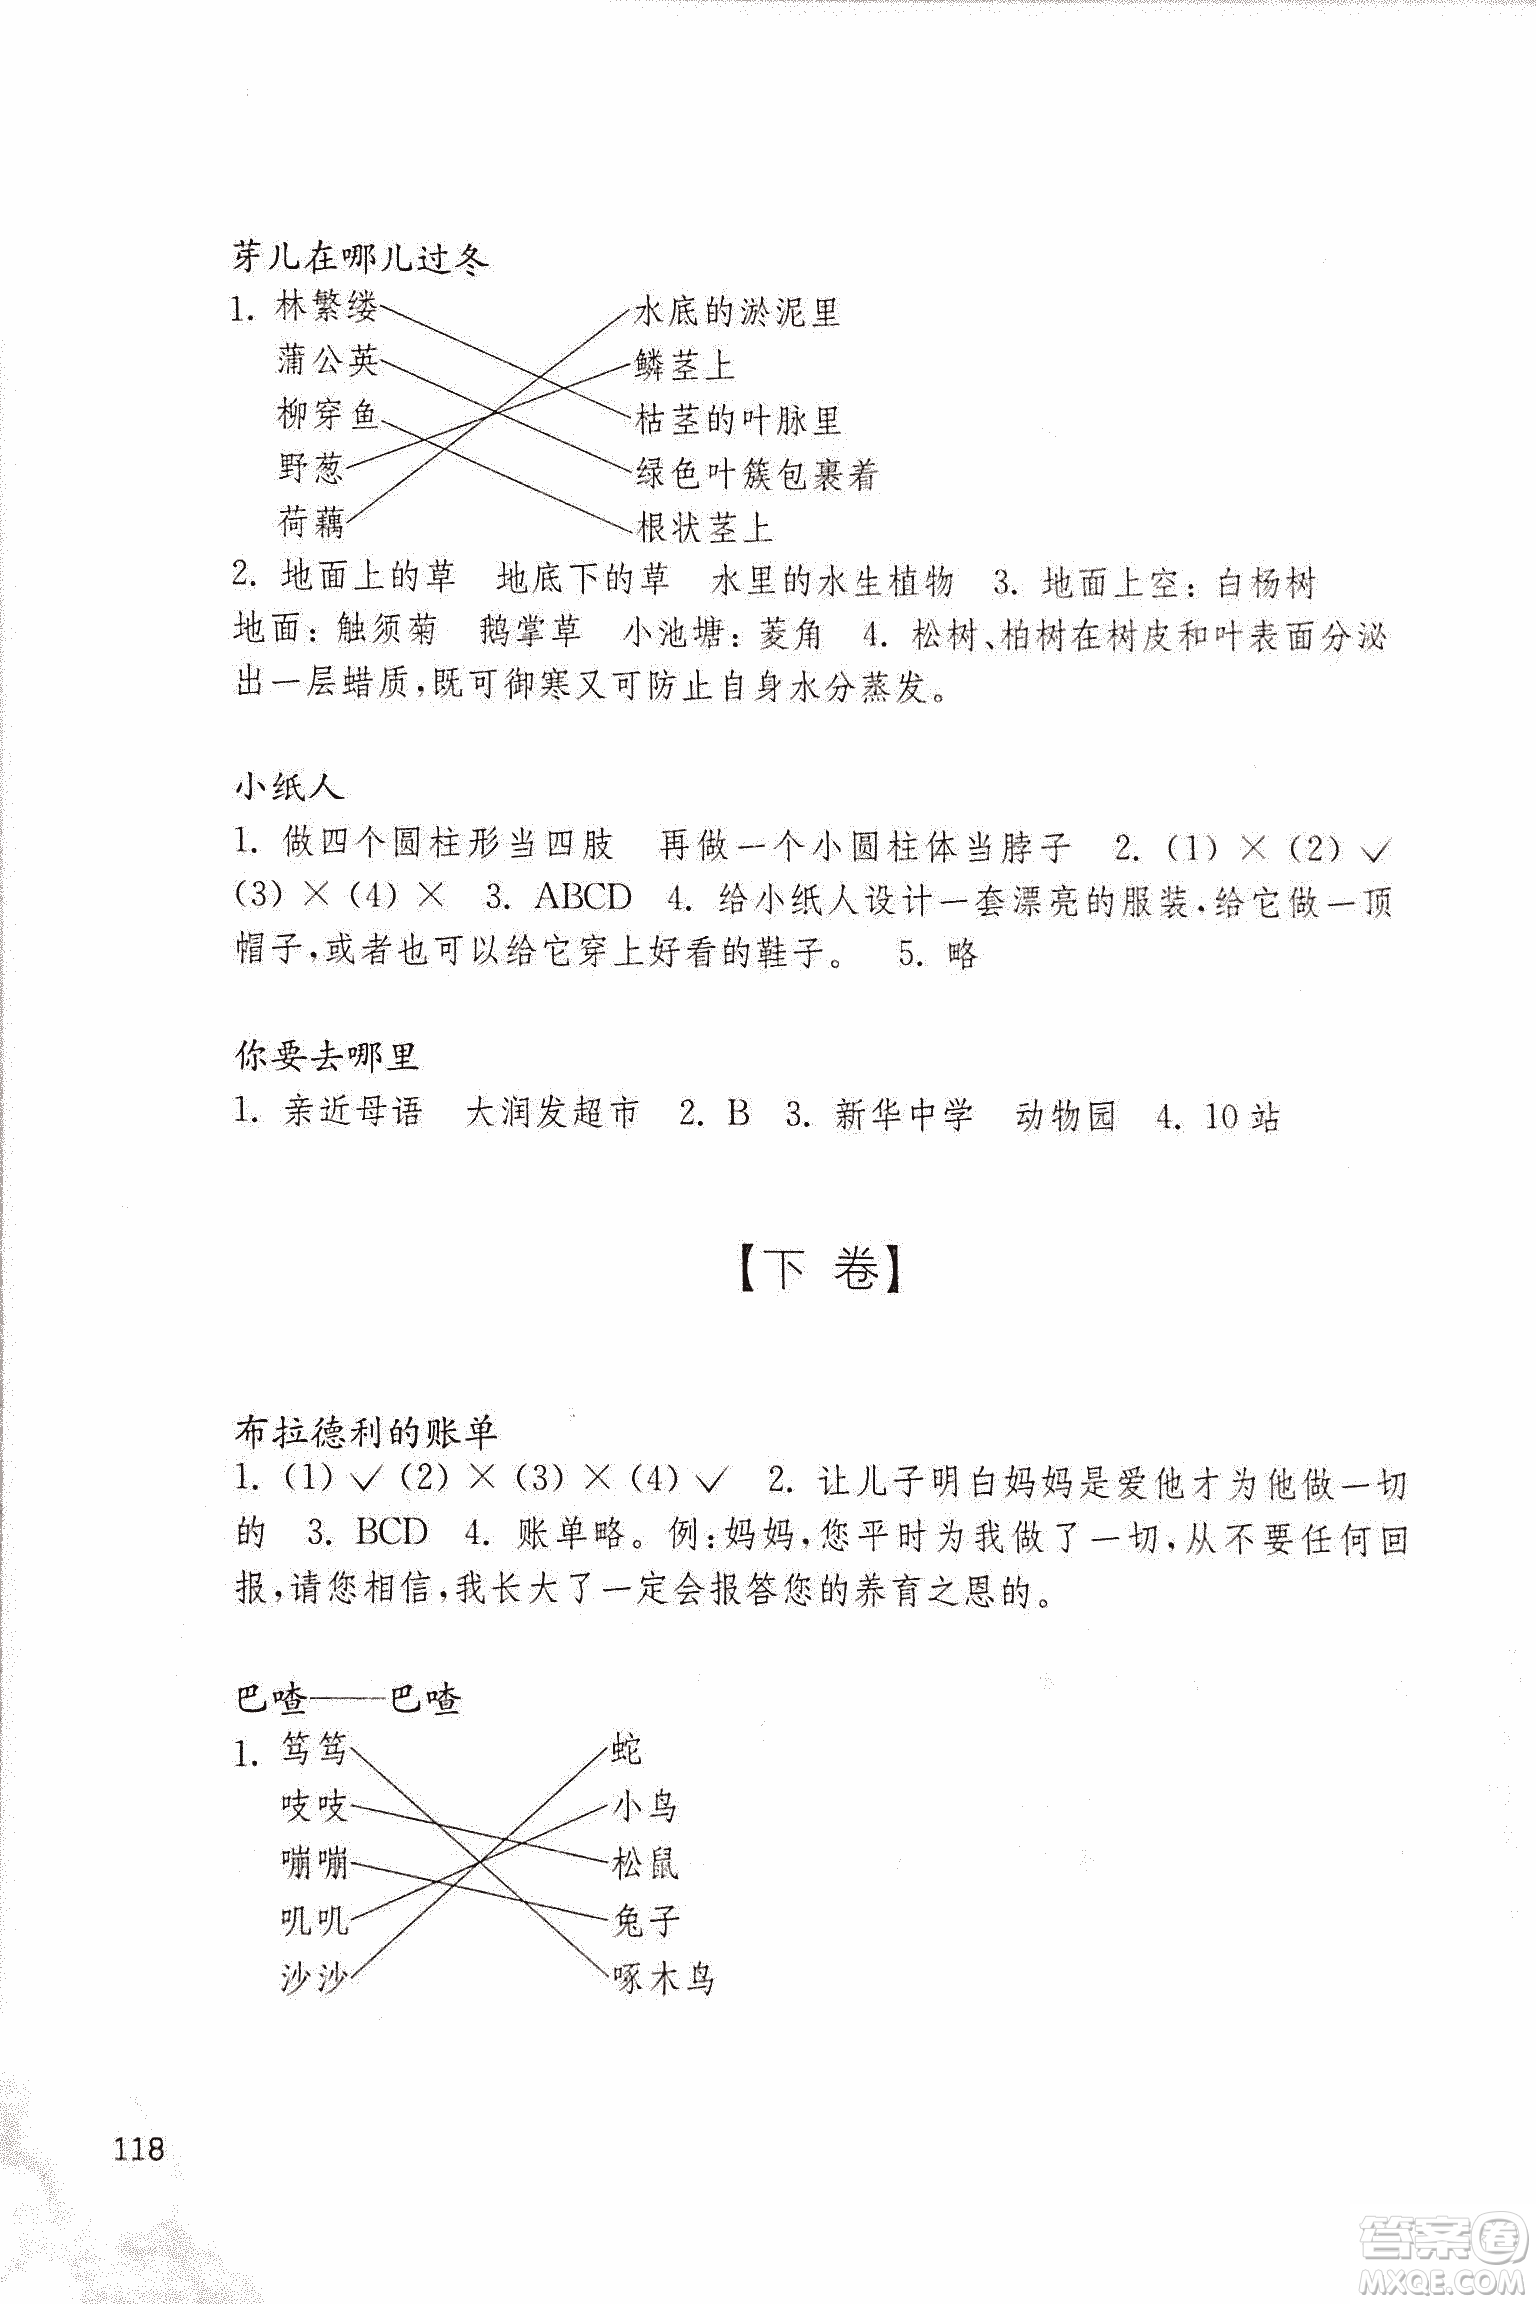 芽儿在哪儿过冬
1. 林繁缕 水底的淤泥里
蒲公英 鳞茎上
柳穿鱼 枯茎的叶脉里
野葱 绿色叶簇包裹着
荷藕 根状茎上
2. 地面上的草 地底下的草 水里的水生植物 3. 地面上空：白杨树
地面：触须菊 鹅掌草 小池塘：菱角 4. 松树、柏树在树皮和叶表面分泌
出一层蜡质，既可御寒又可防止自身水分蒸发。
小纸人
1. 做四个圆柱形当四肢 再做一个小圆柱体当脖子 2. (1) × (2) √
(3) × (4) × 3. ABCD 4. 给小纸人设计一套漂亮的服装，给它做一顶
帽子，或者也可以给它穿上好看的鞋子。 5. 略
你要去哪里
1. 亲近母语 大润发超市 2. B 3. 新华中学 动物园 4. 10 站
【下 卷】
布拉德利的账单
1. (1) √ (2) × (3) × (4) √ 2. 让儿子明白妈妈是爱他才为他做一切
的 3. BCD 4. 账单略。例：妈妈，您平时为我做了一切，从不要任何回
报，请您相信，我长大了一定会报答您的养育之恩的。
巴喳——巴喳
1. 笃笃 蛇
吱吱 小鸟
嘣嘣 松鼠
叽叽 兔子
沙沙 啄木鸟
118
答案卷
MXQE.COM